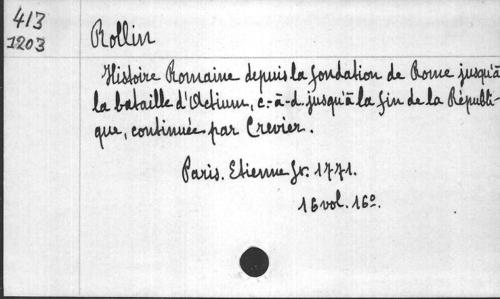 413
1203
Rollin
Histoire Romaine depuis la fondation de Rome jusqu'à
la bataille d'Actium, c.-à-d. jusqu'à la fin de la Républi-
que, continuée par Crevier.
Paris. Etienne fr. 1771.
16 vol. 16º.